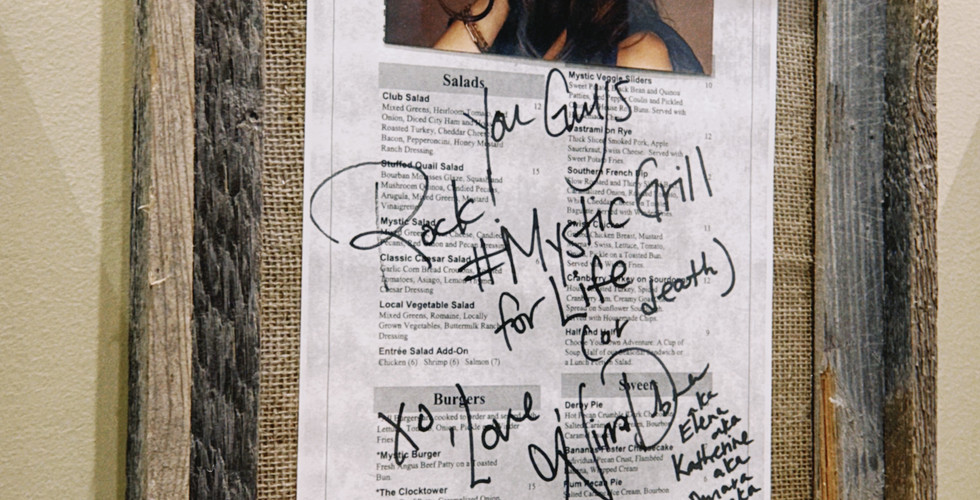 Salads
Club Salad
Mixed Greens, Heirloom
Onion, Diced City Ham and
Roasted Turkey, Cheddar
Bacon, Pepperoncini, Honey Mustard
Ranch Dressing
12
Stuffed Quail Salad
Bourbon Molasses Glaze, Squash and
Mushroom Quinoa, Candied Pecans,
Arugula, Mixed Greens, Mustard
Vinaigrette
15
Mystic Salad
Mixed Greens, Cheese, Candied
Pecans, Red Onion and Pecan Dressing
Classic Caesar Salad
Garlic Corn Bread Croutons,
Tomatoes, Asiago, Lemon
Caesar Dressing
Local Vegetable Salad
Mixed Greens, Romaine, Locally
Grown Vegetables, Buttermilk Ranch
Dressing
Entrée Salad Add-On
Chicken (6) Shrimp (6) Salmon (7)
Burgers
cooked to order and
Fries
*Mystic Burger
Fresh Angus Beef Patty on a Toasted
Bun
*The Clocktower
15
Mystic Veggie Sliders
10
Black Bean and Quinoa
Coulis and Pickled
Buns. Served with
Pastrami on Rye
12
Thick Sliced Smoked Pork, Apple
Sauerkraut, Swiss Cheese. Served with
Sweet Potato Fries
Southern French Dip
Chicken Breast, Mustard
Swiss, Lettuce, Tomato,
Pickle on a Toasted Bun.
Served with Fries
11
Cranberry Turkey on Sourdough
12
Cranberry Jam, Creamy
Spread on Sunflower
Served with Housemade Chips
Half and Half
9
Choose Your Own Adventure: A Cup of
Soup, Half of our Sandwich or
a Lunch Salad
Sweets
Derby Pie
Hot Pecan Crumble, Dark
Salted Caramel Bourbon
Caramel
Bananas Foster Cheesecake
Individual Pecan Crust, Flambéed
Whipped Cream
Rum Pecan Pie
Salted Caramel Ice Cream, Bourbon
You Guys
Rock!
#Mystic Grill
for Life
(or death)
Xo, Love,
Nina Dobrev
aka
Elena
aka
Katherine
aka
Amara
aka